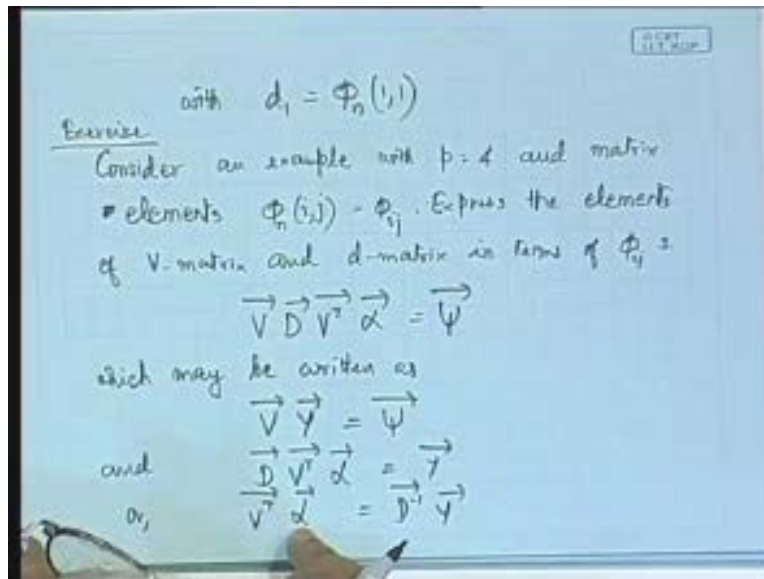 with d₁ = Φₙ(1,1)
Exercise
Consider an example with p = 4 and matrix
elements Φₙ(i,j) = Φᵢⱼ. Express the elements
of V-matrix and d-matrix in terms of Φᵢⱼ :
V⃗ D⃗ V⃗ᵀ α⃗ = Ψ⃗
which may be written as
V⃗ Y⃗ = Ψ⃗
and D⃗ V⃗ᵀ α⃗ = Y⃗
or, V⃗ᵀ α⃗ = D⃗⁻¹ Y⃗